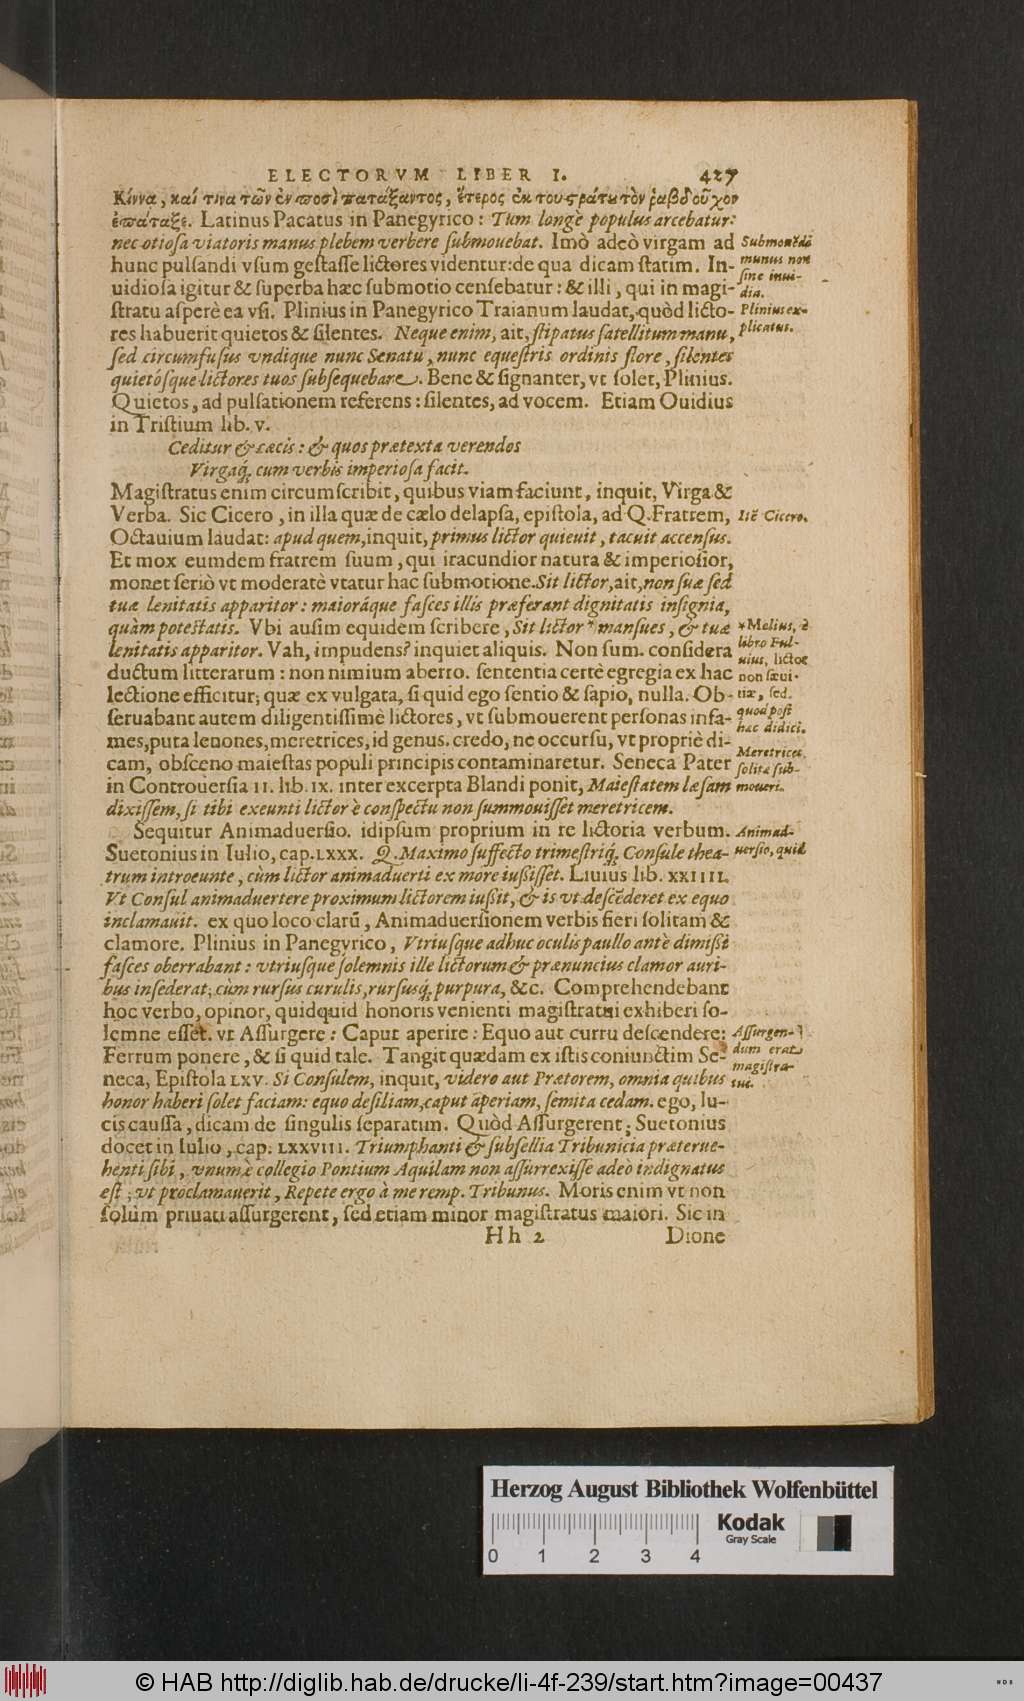 ELECTORVM LIBER I. 427
Κίννα, καί τινα τῶν ἐν ποσὶ πατάξαντος, ἕτερος ἐκ του στράτου τὸν ῥαβδοῦχον
ἐπάταξε. Latinus Pacatus in Panegyrico: Tùm longè populus arcebatur:
nec otioſa viatoris manus plebem verbere ſubmouebat. Imò adeò virgam ad
hunc pulſandi vſum geſtaſſe lictores videntur: de qua dicam ſtatim. In-
uidioſa igitur & ſuperba hæc ſubmotio cenſebatur: & illi, qui in magi-
ſtratu aſperè ea vſi. Plinius in Panegyrico Traianum laudat, quòd licto-
res habuerit quietos & ſilentes. Neque enim, ait, ſtipatus ſatellitum manu,
ſed circumfuſus vndique nunc Senatu, nunc equeſtris ordinis flore, ſilentes
quietóſque lictores tuos ſubſequebare. Bene & ſignanter, vt ſolet, Plinius.
Quietos, ad pulſationem referens: ſilentes, ad vocem. Etiam Ouidius
in Triſtium lib. v.
Ceditur & cæcis: & quos prætexta verendos
Virgaq́; cum verbis imperioſa facit.
Magiſtratus enim circumſcribit, quibus viam faciunt, inquit, Virga &
Verba. Sic Cicero, in illa quæ de cælo delapſa, epiſtola, ad Q. Fratrem,
Octauium laudat: apud quem, inquit, primus lictor quieuit, tacuit accenſus.
Et mox eumdem fratrem ſuum, qui iracundior natura & imperioſior,
monet ſeriò vt moderatè vtatur hac ſubmotione. Sit lictor, ait, non ſuæ ſed
tuæ lenitatis apparitor: maioráque faſces illis præferant dignitatis inſignia,
quàm poteſtatis. Vbi auſim equidem ſcribere, Sit lictor * manſues, & tuæ
lenitatis apparitor. Vah, impudens? inquiet aliquis. Non ſum. conſidera
ductum litterarum: non nimium aberro. ſententia certè egregia ex hac
lectione efficitur; quæ ex vulgata, ſi quid ego ſentio & ſapio, nulla. Ob-
ſeruabant autem diligentiſſimè lictores, vt ſubmouerent perſonas infa-
mes, puta lenones, meretrices, id genus. credo, ne occurſu, vt propriè di-
cam, obſceno maieſtas populi principis contaminaretur. Seneca Pater
in Controuerſia II. lib. IX. inter excerpta Blandi ponit, Maieſtatem læſam
dixiſſem, ſi tibi exeunti lictor è conſpectu non ſummouiſſet meretricem.
Sequitur Animaduerſio. idipſum proprium in re lictoria verbum.
Suetonius in Iulio, cap. LXXX. Q. Maximo ſuffecto trimeſtriq́; Conſule thea-
trum introeunte, cùm lictor animaduerti ex more iuſſiſſet. Liuius lib. XXIIII.
Vt Conſul animaduertere proximum lictorem iuſſit, & is vt deſcēderet ex equo
inclamauit. ex quo loco clarū, Animaduerſionem verbis fieri ſolitam &
clamore. Plinius in Panegyrico, Vtriuſque adhuc oculis paullo antè dimiſſi
faſces oberrabant: vtriuſque ſolemnis ille lictorum & prænuncius clamor auri-
bus inſederat; cùm rurſus curulis, rurſusq́; purpura, &c. Comprehendebant
hoc verbo, opinor, quidquid honoris venienti magiſtratui exhiberi ſo-
lemne eſſet. vt Aſſurgere: Caput aperire: Equo aut curru deſcendere:
Ferrum ponere, & ſi quid tale. Tangit quædam ex iſtis coniunctim Se-
neca, Epiſtola LXV. Si Conſulem, inquit, videro aut Prætorem, omnia quibus
honor haberi ſolet faciam: equo deſiliam, caput aperiam, ſemita cedam. ego, lu-
cis cauſſa, dicam de ſingulis ſeparatim. Quòd Aſſurgerent; Suetonius
docet in Iulio, cap. LXXVIII. Triumphanti & ſubſellia Tribunicia præterue-
henti ſibi, vnum è collegio Pontium Aquilam non aſſurrexiſſe adeò indignatus
eſt; vt proclamauerit, Repete ergo à me remp. Tribunus. Moris enim vt non
ſolùm priuati aſſurgerent, ſed etiam minor magiſtratus maiori. Sic in
Hh 2 Dione
Submouēdi
munus non
ſine inui-
dia.
Plinius ex-
plicatus.
Itē Cicero.
* Melius, è
libro Ful-
uius, lictor
non ſæui-
tiæ, ſed.
quod poſt
hac didici.
Meretrices
ſolitæ ſub-
moueri.
Animad-
uerſio, quid
Aſſurgen-
dum erat
magiſtra-
tui.
Herzog August Bibliothek Wolfenbüttel
0 1 2 3 4
Kodak
Gray Scale
© HAB http://diglib.hab.de/drucke/li-4f-239/start.htm?image=00437